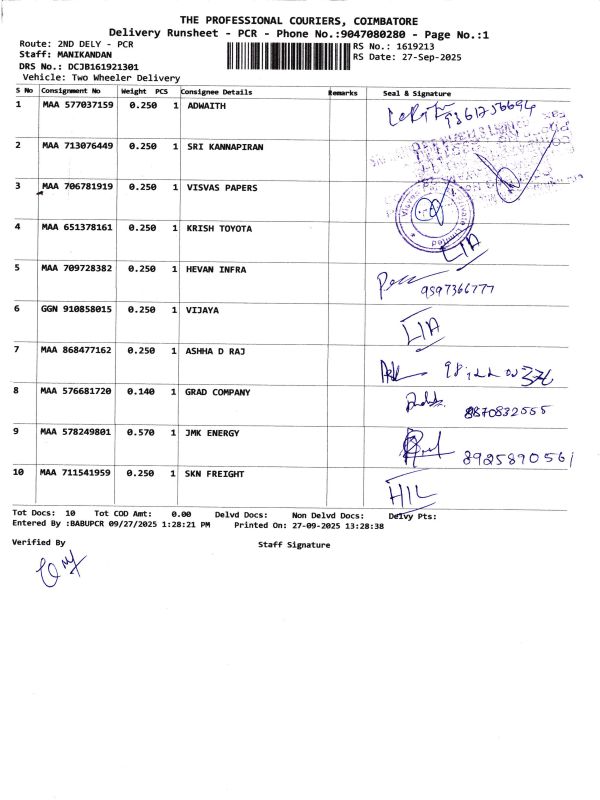 THE PROFESSIONAL COURIERS, COIMBATORE
Delivery Runsheet - PCR - Phone No.:9047080280 - Page No.:1
Route: 2ND DELY - PCR RS No.: 1619213
Staff: MANIKANDAN RS Date: 27-Sep-2025
DRS No.: DCJB161921301
Vehicle: Two Wheeler Delivery
S No Consignment No Weight PCS Consignee Details Remarks Seal & Signature
1 MAA 577037159 0.250 1 ADWAITH 9361756694
2 MAA 713076449 0.250 1 SRI KANNAPIRAN
3 MAA 706781919 0.250 1 VISVAS PAPERS
4 MAA 651378161 0.250 1 KRISH TOYOTA
5 MAA 709728382 0.250 1 HEVAN INFRA 9597366777
6 GGN 910858015 0.250 1 VIJAYA
7 MAA 868477162 0.250 1 ASHHA D RAJ
8 MAA 576681720 0.140 1 GRAD COMPANY 8870832555
9 MAA 578249801 0.570 1 JMK ENERGY 8925890561
10 MAA 711541959 0.250 1 SKN FREIGHT HIL
Tot Docs: 10 Tot COD Amt: 0.00 Delvd Docs: Non Delvd Docs: Delvy Pts:
Entered By :BABUPCR 09/27/2025 1:28:21 PM Printed On: 27-09-2025 13:28:38
Verified By Staff Signature